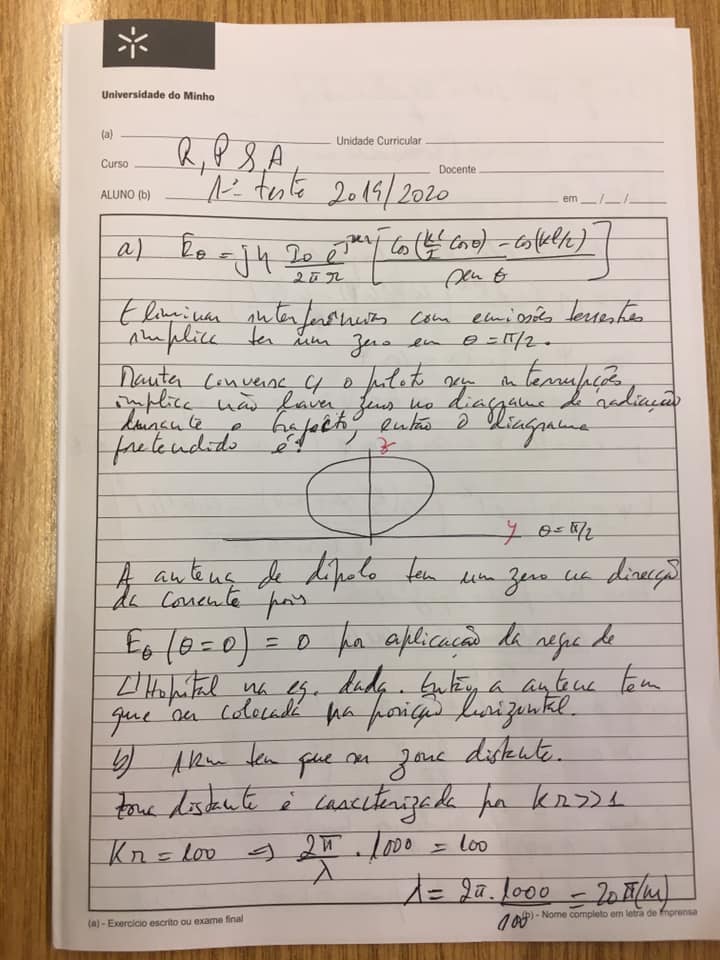 Universidade do Minho
(a) Unidade Curricular
Curso R, P & A Docente
ALUNO (b) 1º teste 2019/2020 em __/__/__
a) Eθ = jη I0 e^-jkr / 2πr [ cos(kl/2 cosθ) - cos(kl/2) / sen θ ]
Eliminar interferências com emissões terrestres
implica ter um zero em θ = π/2.
Manter conversa c/ o piloto sem interrupções
implica não haver zeros no diagrama de radiação
durante o trajecto, então o diagrama
pretendido é:
z
y θ = π/2
A antena de dipolo tem um zero na direcção
da corrente pois
Eθ (θ=0) = 0 por aplicação da regra de
L'Hopital na eq. dada. Então a antena tem
que ser colocada na posição horizontal.
b) 1km tem que ser zona distante.
Zona distante é caracterizada por kr>>1
Kr = 100 => 2π/λ . 1000 = 100
λ = 2π . 1000/100 = 20π(m)
(a) - Exercício escrito ou exame final (b) - Nome completo em letra de imprensa